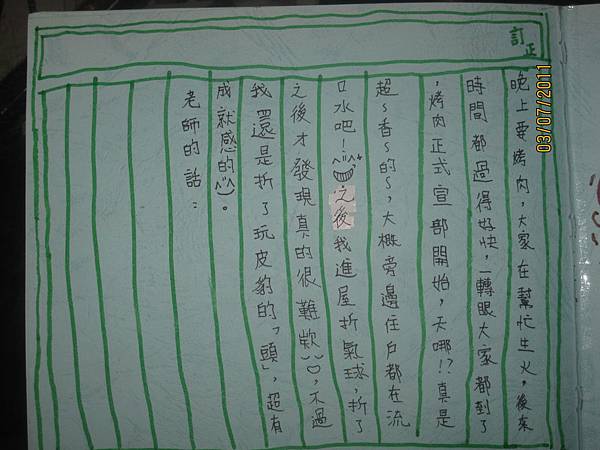 訂正
晚上要烤肉,大家在幫忙生火,後來
時間都過得好快,一轉眼大家都到了
,烤肉正式宣部開始,天哪!?真是
超~香~的~,大概旁邊住戶都在流
口水吧!之後我進屋折氣球,折了
之後才發現真的很難欸,不過
我還是折了玩皮豹的「頭」,超有
成就感的(^^)。
老師的話:
03/07/2011